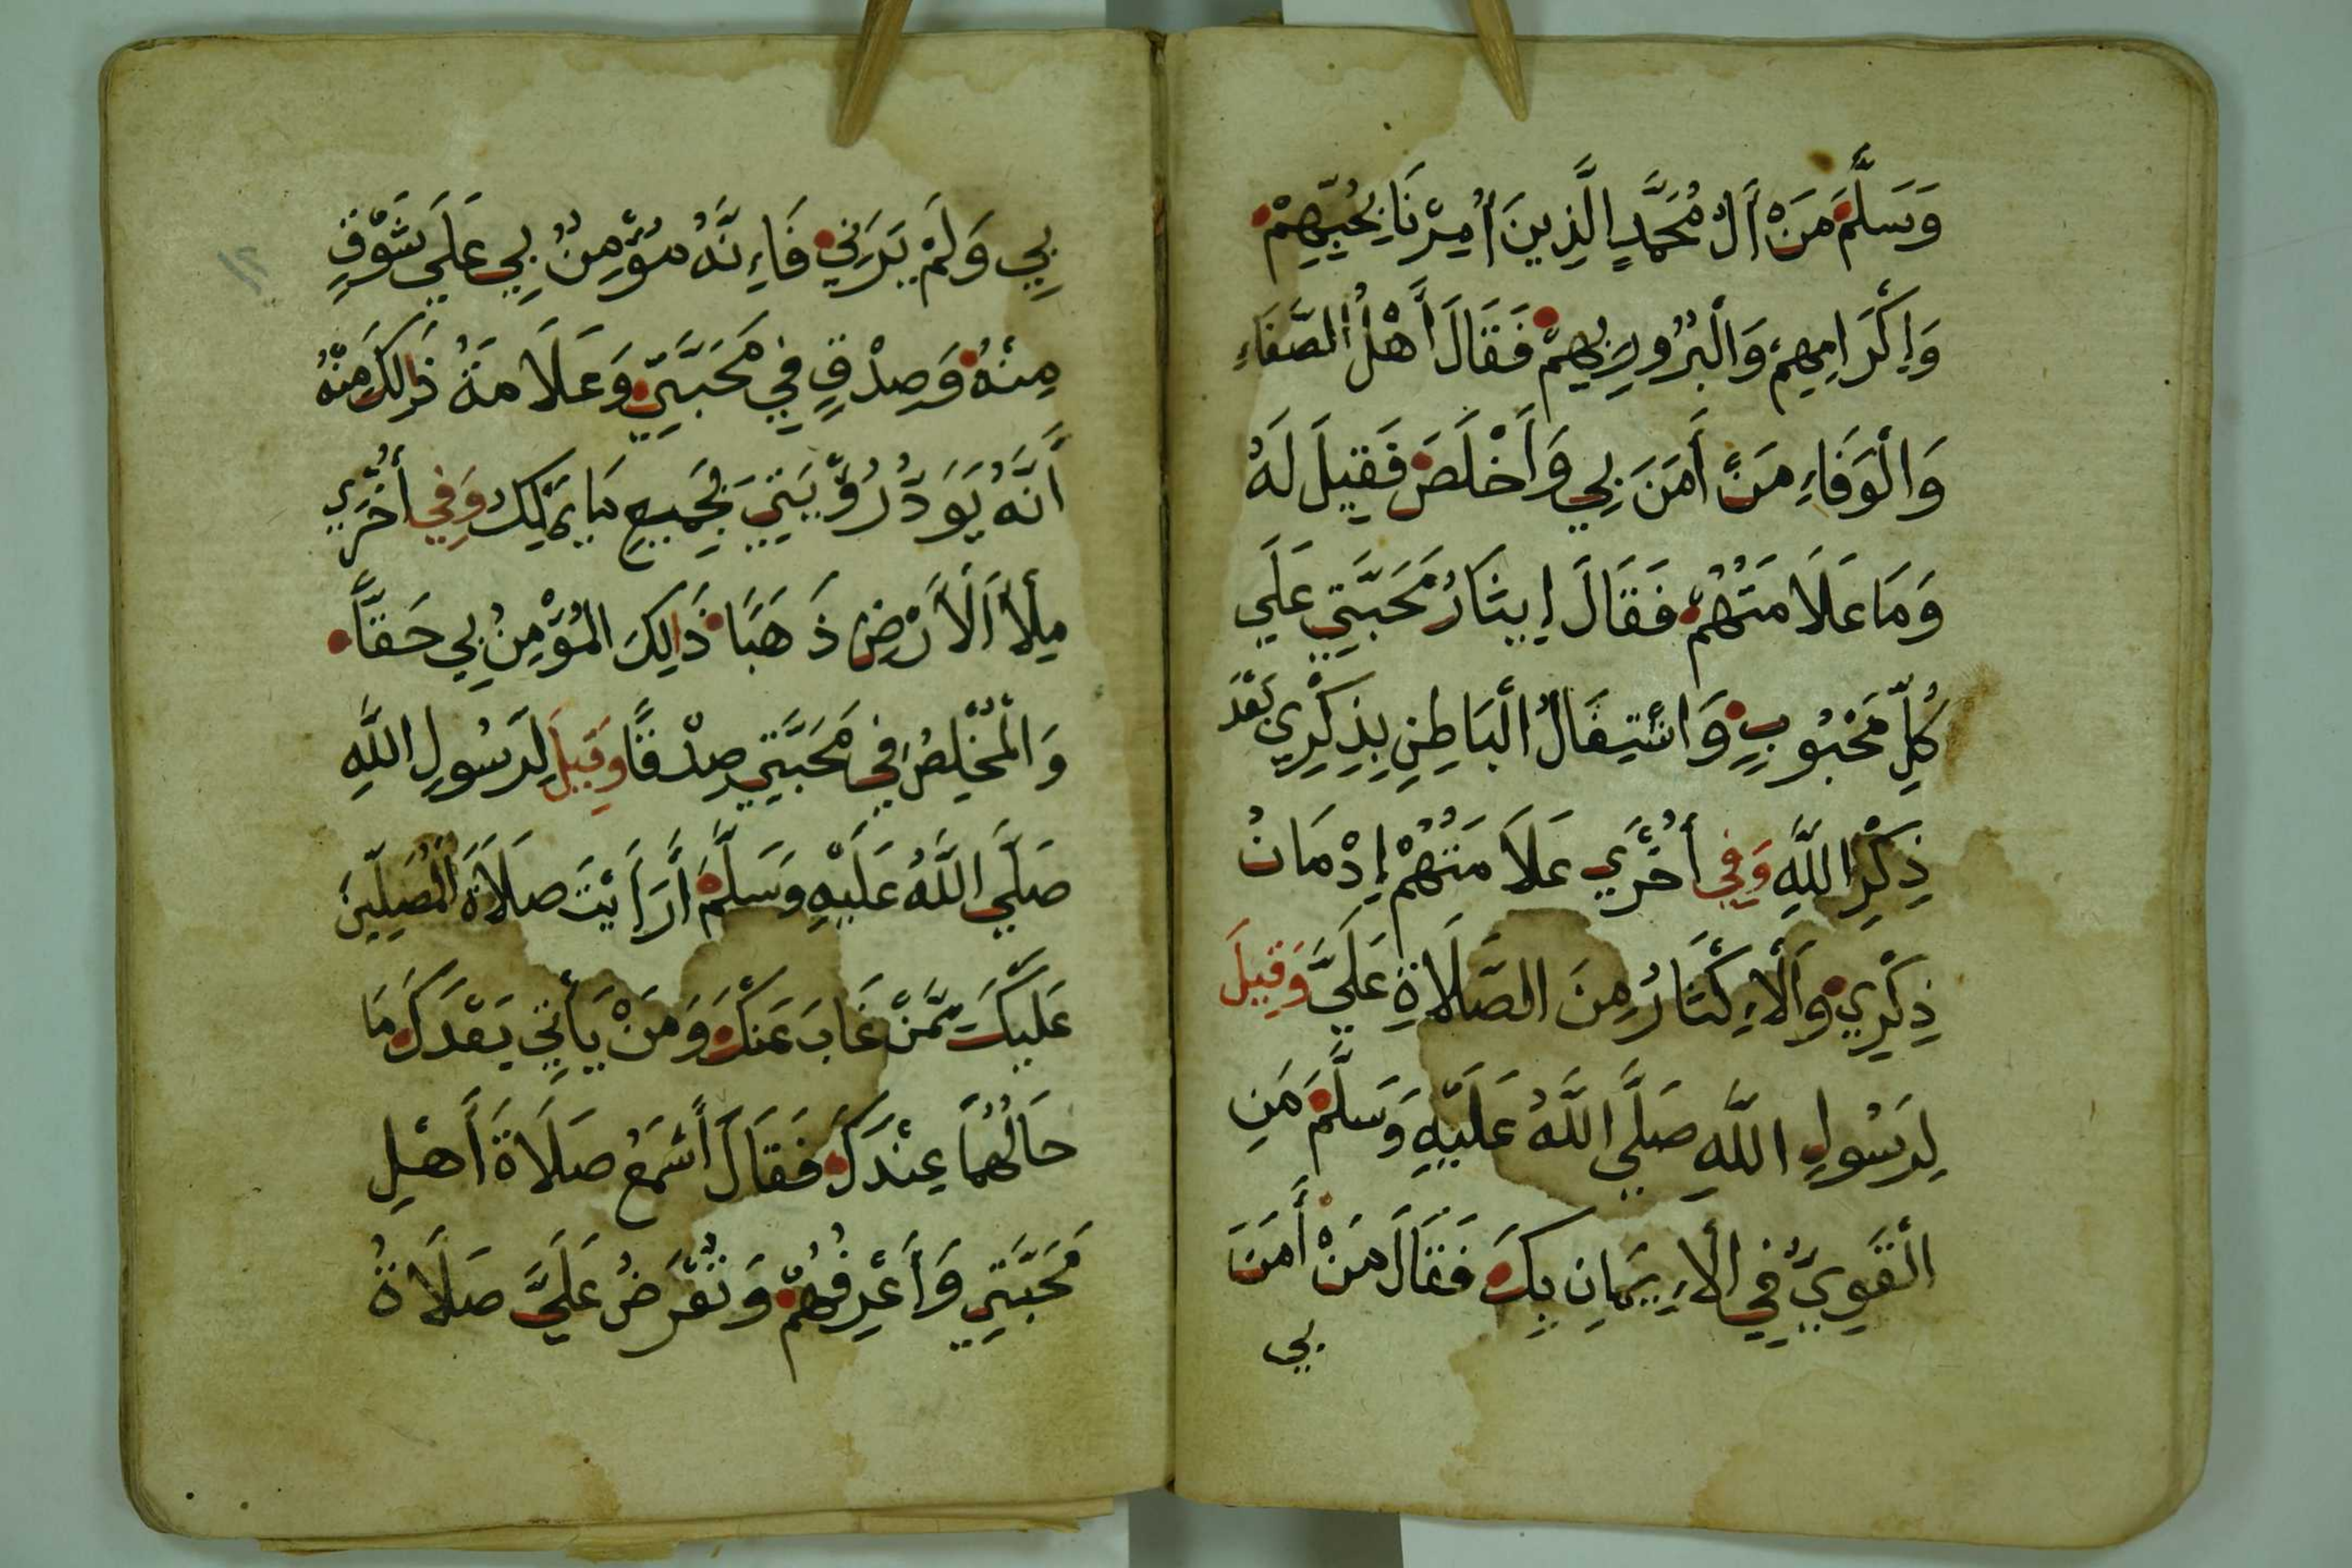 وَسَلَّمَ مَنْ أَلُ مُحَمَّدٍ الَّذِينَ أُمِرْنَا بِحُبِّهِمْ
وَإِكْرَامِهِمْ وَالْبُرُورِ بِهِمْ فَقَالَ أَهْلُ الصَّفَاءِ
وَالْوَفَاءِ مَنْ أَمَنَ بِي وَأَخْلَصَ فَقِيلَ لَهُ
وَمَا عَلَامَتُهُمْ فَقَالَ إِيثَارُ مَحَبَّتِي عَلَي
كُلِّ مَحْبُوبٍ وَاشْتِغَالُ الْبَاطِنِ بِذِكْرِي بَعْدَ
ذِكْرِ اللَّهِ وَفِي أُخْرَي عَلَامَتُهُمْ إِدْمَانُ
ذِكْرِي وَالْإِكْثَارُ مِنَ الصَّلَاةِ عَلَيَّ وَقِيلَ
لِرَسُولِ اللَّهِ صَلَّي اللَّهُ عَلَيْهِ وَسَلَّمَ مَنِ
الْقَوِيُّ فِي الْإِيمَانِ بِكَ فَقَالَ مَنْ أَمَنَ
بي
١٢
بِي وَلَمْ يَرَنِي فَإِنَّهُ مُؤْمِنٌ بِي عَلَي شَوْقٍ
مِنْهُ وَصِدْقٍ فِي مَحَبَّتِي وَعَلَامَةُ ذَالِكَ مِنْهُ
أَنَّهُ يَوَدُّ رُؤْيَتِي بِجَمِيعِ مَا يَمْلِكُ وَفِي أُخْرَي
مِلْأَ الْأَرْضِ ذَهَبًا ذَالِكَ الْمُؤْمِنُ بِي حَقًّا
وَالْمُخْلِصُ فِي مَحَبَّتِي صِدْقًا وَقِيلَ لِرَسُولِ اللَّهِ
صَلَّي اللَّهُ عَلَيْهِ وَسَلَّمَ أَرَأَيْتَ صَلَاةَ الْمُصَلِّينَ
عَلَيْكَ مِمَّنْ غَابَ عَنْكَ وَمَنْ يَأْتِي بَعْدَكَ مَا
حَالُهُمَا عِنْدَكَ فَقَالَ أَسْمَعُ صَلَاةَ أَهْلِ
مَحَبَّتِي وَأَعْرِفُهُمْ وَتُعْرَضُ عَلَيَّ صَلَاةُ